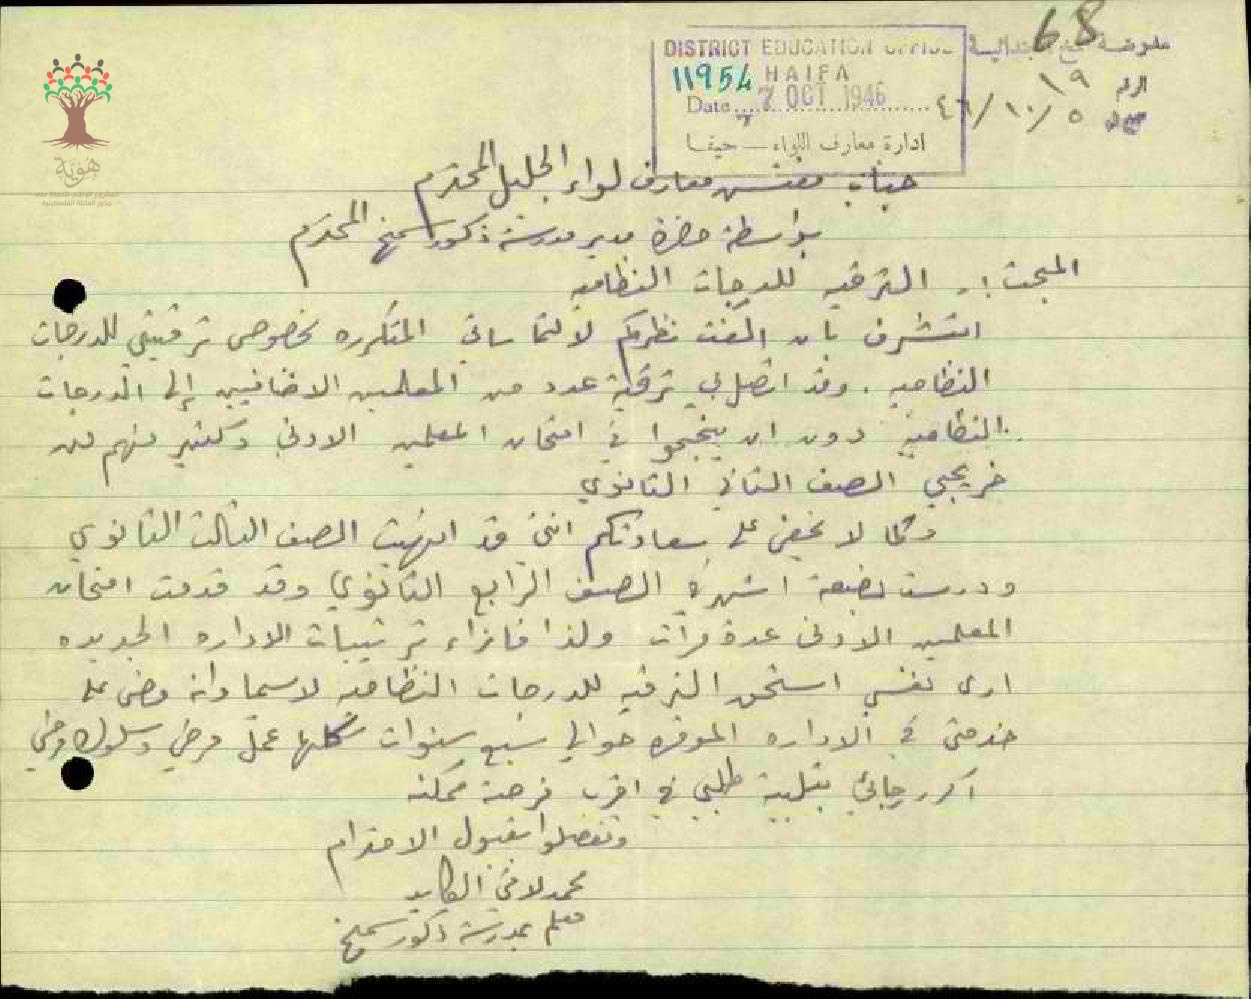 68
DISTRICT EDUCATION OFFICE
HAIFA
11954
Date 7 OCT 1946
ادارة معارف اللواء — حيفا
الرقم ١٩
٤٦/١٠/٥
هوية
جناب مفتش معارف لواء الجليل المحترم
بواسطة حضرة مدير مدرسة ذكور سمخ المحترم
المبحث :. الترقيه للدرجات النظاميه
اتشرف بان الفت نظركم لالتماساتي المتكرره بخصوص ترقيتي للدرجات
النظاميه . وقد اتصل بي ترقية عدد من المعلمين الاضافيين إلى الدرجات
النظاميه دون ان ينجحوا في امتحان المعلمين الادنى وكثير منهم من
خريجي الصف الثاني الثانوي
وكما لا يخفى على سعادتكم انني قد انهيت الصف الثالث الثانوي
ودرست بضعة اشهر في الصف الرابع الثانوي وقد قدمت امتحان
المعلمين الادنى عدة مرات ولذا فازاء ترتيبات الاداره الجديده
ارى نفسي استحق الترقيه للدرجات النظاميه لاسيما وانه مضى على
خدمتي في الاداره الموقره حوالي سبع سنوات كلها عمل مرضي وسلوك مرضي
اكرر رجائي بتلبية طلبي في اقرب فرصة ممكنه
وتفضلوا بقبول الاحترام
محمد لافي الكايد
معلم بمدرسة ذكور سمخ